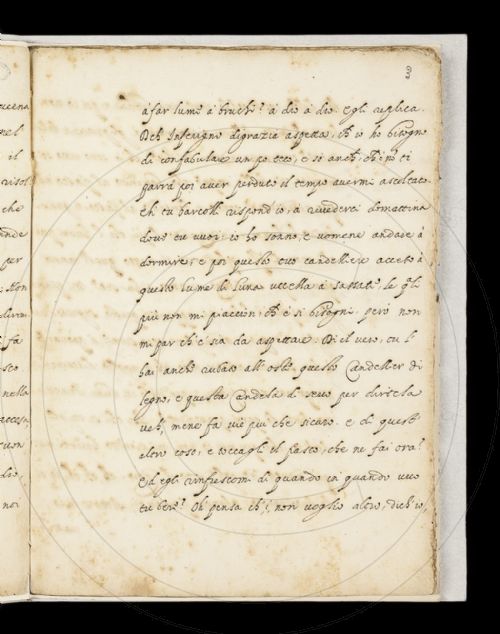 3
á far lume á bruchi? á dio á dio. Egli replica.
Deh Inferigno digrazia aspetta, ch' io ho bisogno
di confabulare un po teco, e so anch', ch' no ti
parrà poi aver perduto il tempo avermi ascoltato.
eh tu barcolli rispond' io, a rivederci domattina
dove tu vuoi: io ho sonno, e vomene andare á
dormire; e poi questo tuo candelliere acceso á
questo lume di luna uccella á
più non mi piaccion; ch' è si bisogni però non
mi par ch' e sia da aspettare. Di il vero, tu l'
hai anche rubato all' oste questo Candellier di
legno, e questa Candela di sevo per dirtela
veh, mene fa viè più che sicuro. e di quest'
altre cose, e toccagli il fiasco, che ne fai ora?
Ed egli rinfrescomi di quando in quando vuo
tu bere? Oh pensa ch' i, non voglio altro, dich' io,
ucena
nel
il
risol
che
ande
per
Mon
fa
sco
nella
accesa
cion
dio,
noi